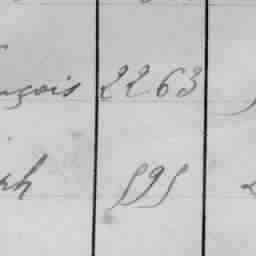 nçois 2263
ph 595